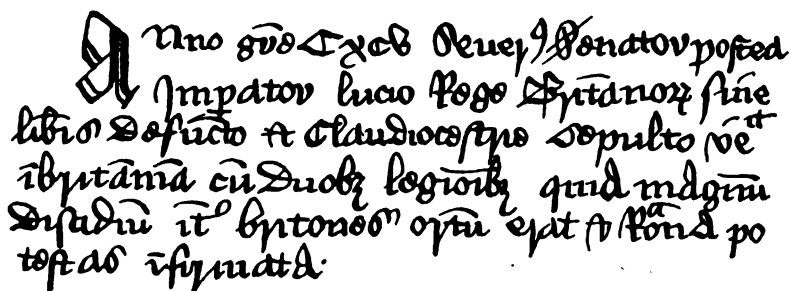 Anno gr̄e Cxcv Seuerꝰ Senator postea
Imꝑator lucio Rege Britānorꝝ sin̄e
lib̄is defūcto et Claudiocestrie sepulto vēit
ī britāniā cū duobꝫ legiōibꝫ quia magnū
discidiū īt̊ britones ortū erat et Romᵃna po
testas īfirmata.